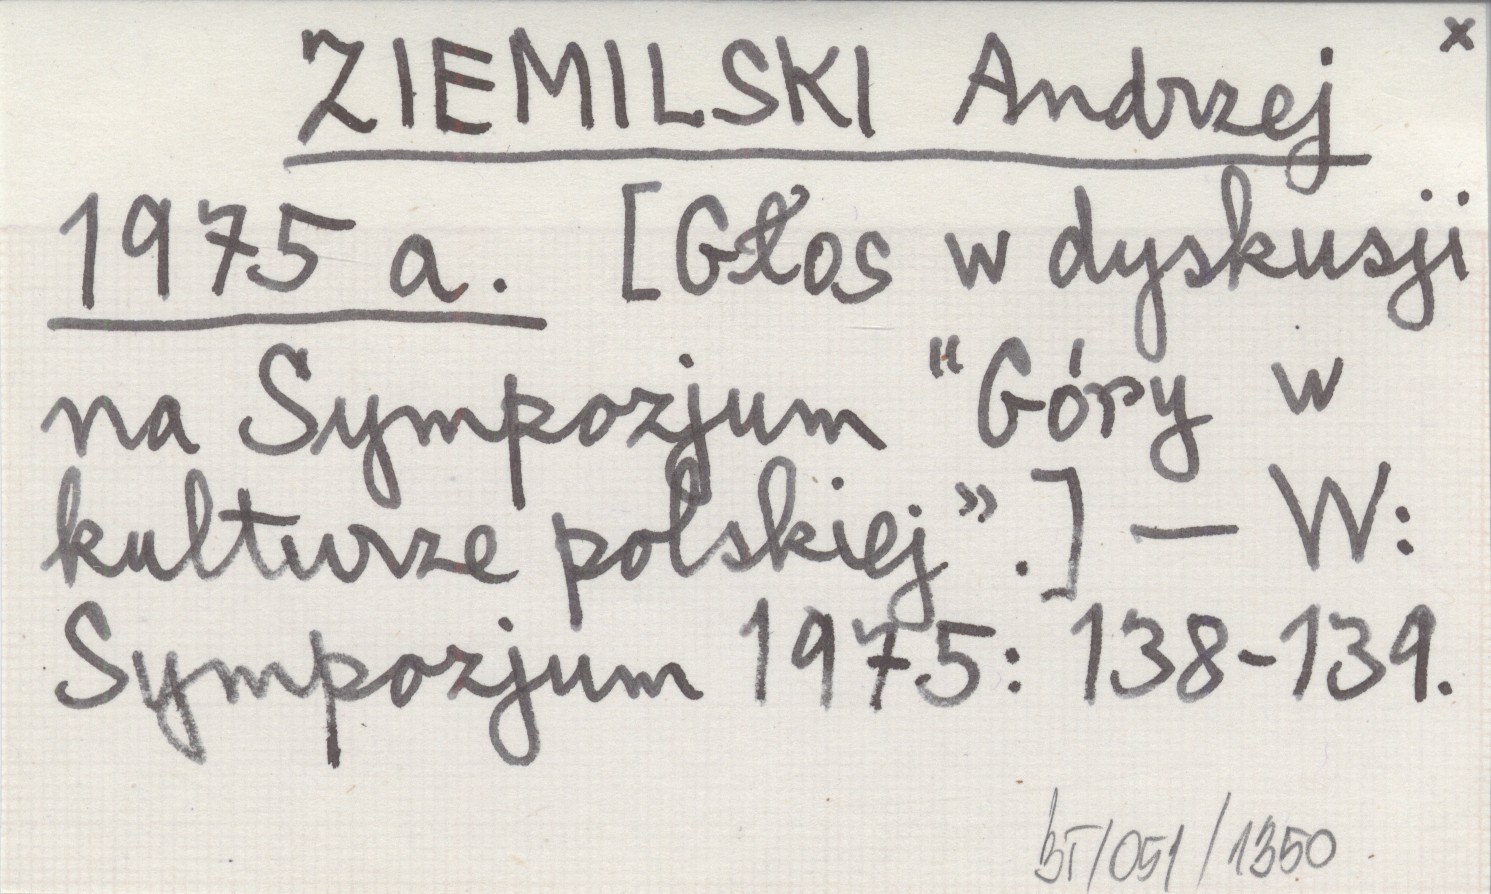 x
ZIEMILSKI Andrzej
1975 a. [Głos w dyskusji
na Sympozjum "Góry w
kulturze polskiej".] — W:
Sympozjum 1975: 138-139.
BT/051/1350